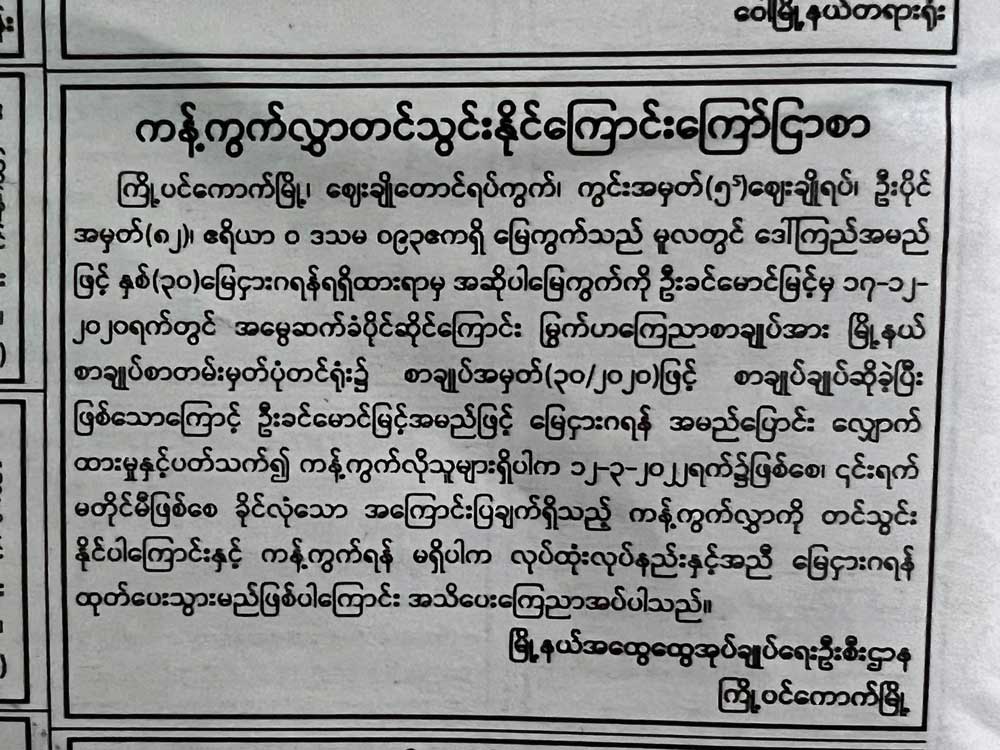 ဝေါမြို့နယ်တရားရုံး
ကန့်ကွက်လွှာတင်သွင်းနိုင်ကြောင်းကြော်ငြာစာ
ကြို့ပင်ကောက်မြို့၊ ဈေးချိုတောင်ရပ်ကွက်၊ ကွင်းအမှတ်(၅ˢ)ဈေးချိုရပ်၊ ဦးပိုင်
အမှတ်(၈၂)၊ ဧရိယာ ၀ ဒသမ ၀၉၃ဧကရှိ မြေကွက်သည် မူလတွင် ဒေါ်ကြည်အမည်
ဖြင့် နှစ်(၃၀)မြေငှားဂရန်ရရှိထားရာမှ အဆိုပါမြေကွက်ကို ဦးခင်မောင်မြင့်မှ ၁၇-၁၂-
၂၀၂၀ရက်တွင် အမွေဆက်ခံပိုင်ဆိုင်ကြောင်း မြွက်ဟကြေညာစာချုပ်အား မြို့နယ်
စာချုပ်စာတမ်းမှတ်ပုံတင်ရုံး၌ စာချုပ်အမှတ်(၃၀/၂၀၂၀)ဖြင့် စာချုပ်ချုပ်ဆိုခဲ့ပြီး
ဖြစ်သောကြောင့် ဦးခင်မောင်မြင့်အမည်ဖြင့် မြေငှားဂရန် အမည်ပြောင်း လျှောက်
ထားမှုနှင့်ပတ်သက်၍ ကန့်ကွက်လိုသူများရှိပါက ၁၂-၃-၂၀၂၂ရက်၌ဖြစ်စေ၊ ၎င်းရက်
မတိုင်မီဖြစ်စေ ခိုင်လုံသော အကြောင်းပြချက်ရှိသည့် ကန့်ကွက်လွှာကို တင်သွင်း
နိုင်ပါကြောင်းနှင့် ကန့်ကွက်ရန် မရှိပါက လုပ်ထုံးလုပ်နည်းနှင့်အညီ မြေငှားဂရန်
ထုတ်ပေးသွားမည်ဖြစ်ပါကြောင်း အသိပေးကြေညာအပ်ပါသည်။
မြို့နယ်အထွေထွေအုပ်ချုပ်ရေးဦးစီးဌာန
ကြို့ပင်ကောက်မြို့